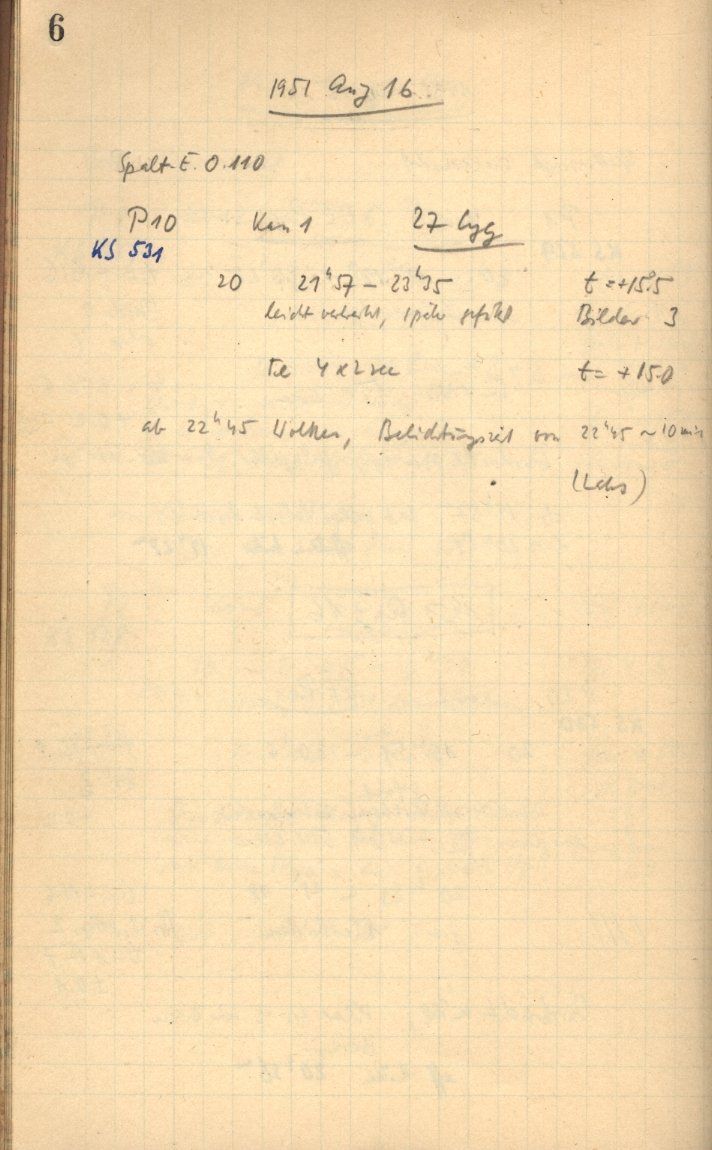 6
1951 Aug 16.
Spalt E. 0.110
P10 Kam 1 27 Cyg
KS 531
20 21ʰ57 – 23ʰ35 t = +15.5
leicht, später Bilder 3
Fe 4 x 2 sec t = +15.0
ab 22ʰ45 Wolken, Belichtungszeit von 22ʰ45 ~ 10 min